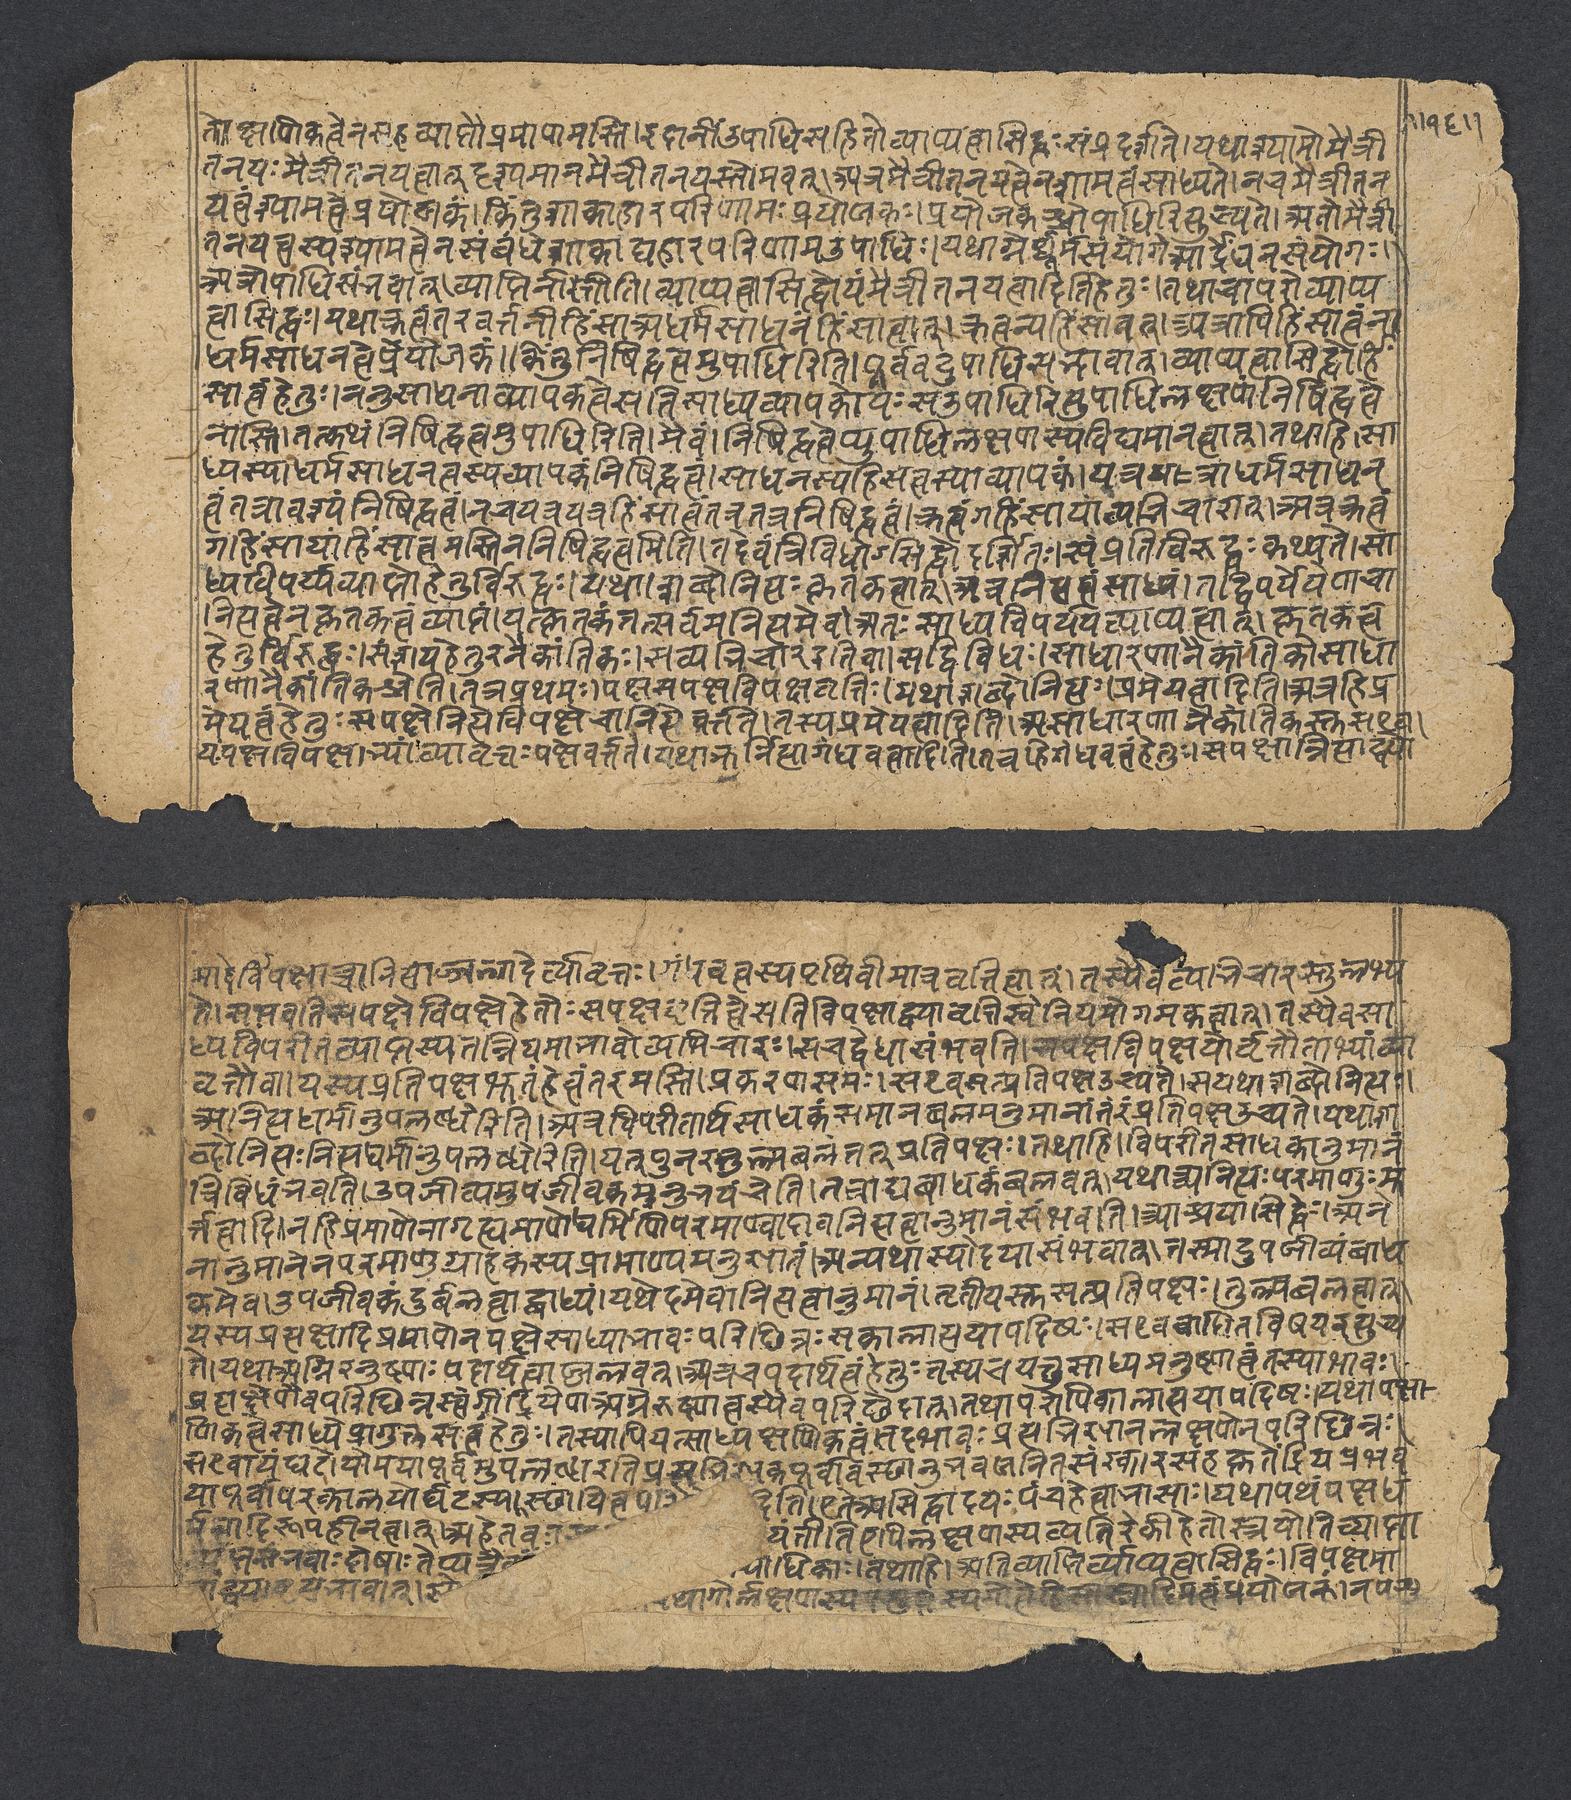 ॥१६॥
तो क्षणिकत्वेनसहव्याप्तौप्रमाणमस्ति।इदानींउपाधिसहितोव्याप्यत्वासिद्धःसंप्रदर्श्यते।यथाश्यामोमैत्री
तनयःमैत्रीतनयत्वात्दृश्यमानमैत्रीतनयस्तोमवत्।अत्रमैत्रीतनयत्वेनश्यामत्वंसाध्यते।नचमैत्रीतन
यत्वंश्यामत्वेप्रयोजकं।किंतुशाकाहारपरिणामःप्रयोजकः।प्रयोजकश्चोपाधिरित्युच्यते।अतोमैत्री
तनयत्वस्यश्यामत्वेनसंबंधेशाकाद्यहारपरिणामउपाधिः।यथाग्नेर्धूमसंयोगेआर्द्रेंधनसंयोगः।
अत्रोपाधिसंभवात्।व्याप्तिर्नास्तीति।व्याप्यत्वासिद्धोयंमैत्रीतनयत्वादितिहेतुः।तथाचापरोव्याप्य
त्वासिद्धः।यथाक्रत्वंतरवर्त्तिनीहिंसाअधर्मसाधनंहिंसात्वात्।क्रत्वन्यहिंसावत्।अत्रापिहिंसात्वंन
धर्मसाधनत्वेप्रयोजकं।किंतुनिषिद्धत्वमुपाधिरिति।पूर्ववदुपाधिसद्भावात्।व्याप्यत्वासिद्धोहिं
सात्वंहेतुः।ननुसाधनाव्यापकत्वेसतिसाध्यव्यापकोयःसउपाधिरित्युपाधिलक्षणंनिषिद्धत्वे
नास्ति।तत्कथंनिषिद्धत्वमुपाधिरिति।मैवं।निषिद्धत्वेप्युपाधिलक्षणस्यविद्यमानत्वात्।तथाहि।सा
ध्यस्याधर्मसाधनत्वस्यव्यापकंनिषिद्धत्वं।साधनस्यहिंसात्वस्याव्यापकं।यत्रयत्राधर्मसाधन
त्वंतत्रावश्यंनिषिद्धत्वं।नचयत्रयत्रहिंसात्वंतत्रतत्रनिषिद्धत्वं।क्रत्वंगहिंसायांव्यभिचारात्।अत्रक्रत्वं
गहिंसायांहिंसात्वमस्तिननिषिद्धत्वमिति।तदेवंत्रिविधोसिद्धोदर्शितः।संप्रतिविरुद्धःकथ्यते।सा
ध्यविपर्ययव्याप्तोहेतुर्विरुद्धः।यथा।शब्दोनित्यःकृतकत्वात्।अत्रनित्यत्वंसाध्यं।तद्विपर्ययेणचा
नित्यत्वेनकृतकत्वंव्याप्तं।यत्कृतकंतत्सर्वमनित्यमेव।अतःसाध्यविपर्ययव्याप्यत्वात्।कृतकत्वं
हेतुर्विरुद्धः।संशयहेतुरनैकांतिकः।सव्यभिचारइतिवा।सद्विविधः।साधारणानैकांतिकोसाधा
रणानैकांतिकश्चेति।तत्रप्रथमः।पक्षसपक्षविपक्षवृत्तिः।यथाशब्दोनित्यः।प्रमेयत्वादिति।अत्रहिप्र
मेयत्वंहेतुःसपक्षेनित्येविपक्षेचानित्येवर्त्तते।तस्यप्रमेयत्वादिति।असाधारणानैकांतिकस्तुसएव।
यःपक्षविपक्षाभ्यांव्यावृत्तःपक्षेवर्त्तते।यथाभूर्नित्यागंधवत्वादिति।तत्रहिगंधवत्वंहेतुः।सपक्षान्नित्याद्व्यो
मादेर्विपक्षाच्चानित्याज्जलादेर्व्यावृत्तः।गंधवत्वस्यपृथिवीमात्रवृत्तित्वात्।तस्यैवव्यभिचारस्तुलभ्य
ते।सभवतिसपक्षेविपक्षेहेतोःसपक्षवृत्तित्वेसतिविपक्षाद्व्यावृत्तिस्त्वेनियमोगमकत्वात्।तस्यैवसा
ध्यविपरीतव्याप्तस्यतन्नियमाभावोव्यभिचारः।सचद्वेधासंभवति।सपक्षविपक्षयोर्वृत्तौताभ्यांव्या
वृत्तौवा।यस्यप्रतिपक्षभूतंहेत्वंतरमस्ति।प्रकरणसमः।सएवसत्प्रतिपक्षउच्यते।सयथाशब्दोनित्यः।
अनित्यधर्मानुपलब्धेरिति।अत्रविपरीतार्थसाधकंसमानबलमनुमानांतरंप्रतिपक्षउच्यते।यथाश
ब्दोनित्यःनित्यधर्मानुपलब्धेरिति।यत्पुनरतुल्यबलंतत्प्रतिपक्षः।तथाहि।विपरीतसाधकानुमानं
त्रिविधंभवति।उपजीव्यमुपजीवकमनुभयंचेति।तत्राद्यंबाधकंबलवत्।यथाअनित्यःपरमाणुःमू
र्त्तत्वादि।नहिप्रमाणेनागृह्यमाणेधर्मिणिपरमाण्वादावनित्यत्वानुमानंसंभवति।आश्रयासिद्धेः।अने
नानुमानेनपरमाणुग्राहकस्यप्रामाण्यमनुज्ञातं।अन्यथास्योदयासंभवात्।तस्मादुपजीव्यंबाध
कमेव।उपजीवकंदुर्बलत्वाद्बाध्यं।यथेदमेवानित्यत्वानुमानं।तृतीयस्तुसत्प्रतिपक्षः।तुल्यबलत्वात्।
यस्यप्रत्यक्षादिप्रमाणेनपक्षेसाध्याभावःपरिछिन्नःसकालात्ययापदिष्टः।सएवबाधितविषयइत्युच्य
ते।यथाअग्निरनुष्णःपदार्थत्वाज्जलवत्।अत्रचपदार्थत्वंहेतुःतस्यचयत्तुसाध्यमनुष्णत्वंतस्याभावः।
प्रत्यक्षेणैवपरिछिन्नस्त्वगींद्रियेणअग्नेरुष्णत्वस्यैवपरिछेदात्।तथापरोपिकालात्ययापदिष्टः।यथा
णिकत्वेसाध्येप्रागुक्तंसत्वंहेतुः।तस्यापियत्साध्यंक्षणिकत्वंतदभावःप्रत्यभिज्ञानलक्षणेनपरिछिन्नः।
सएवायंघटोयोमयापूर्वमुपलब्धइतिप्रत्यभिज्ञकपूर्वावस्छानुभवजनितसंस्कारसहकृतेंद्रियप्रभव
यापूर्वापरकालयोर्घटस्यस्छायित्वप दिति।एतेअसिद्धादयःपंचहेत्वाभासाः।यथापथंपक्षध
र्मत्वादिरूपहीनत्वात्।अहेतव यंतीति।येपिलक्षणस्यव्यतिरेकीहेतोस्त्रयोतिव्याप्ता
दोषाःतेप्यत्रै योधिकाः।तथाहि।अतिव्याप्तिर्व्याप्यत्वासिद्धः।विपक्षमा
थागोर्लक्षणस्य सास्नादिमत्वंप्रयोजकं।नपशु